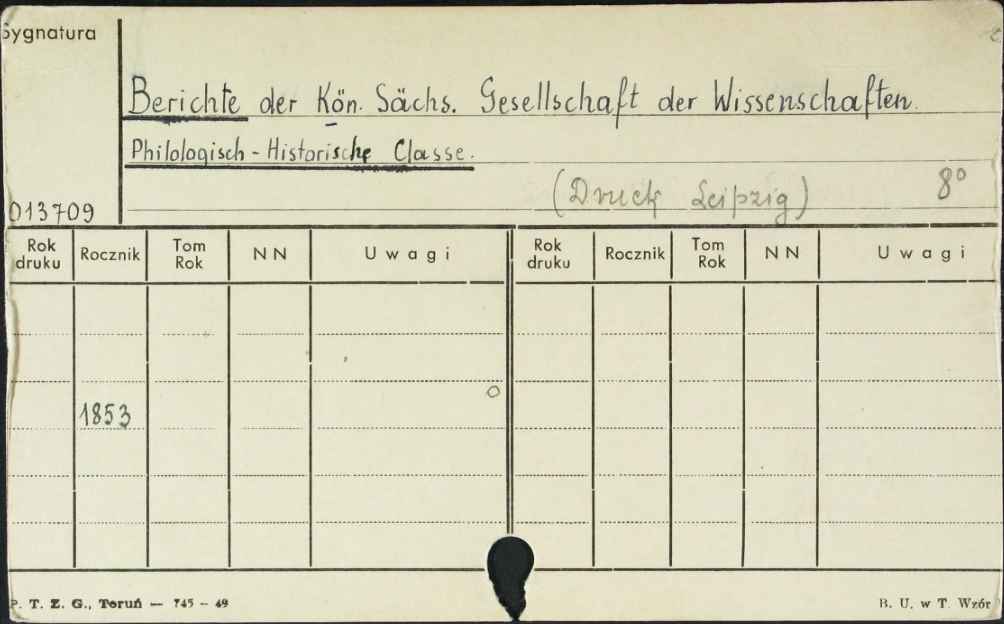 Sygnatura
Berichte der Kön. Sächs. Gesellschaft der Wissenschaften.
Philologisch-Historische Classe.
(Druck Leipzig) 8°
013709
Rok druku Rocznik Tom Rok NN Uwagi Rok druku Rocznik Tom Rok NN Uwagi
1853
P. T. Z. G., Toruń — 745 - 49 B. U. w T. Wzór